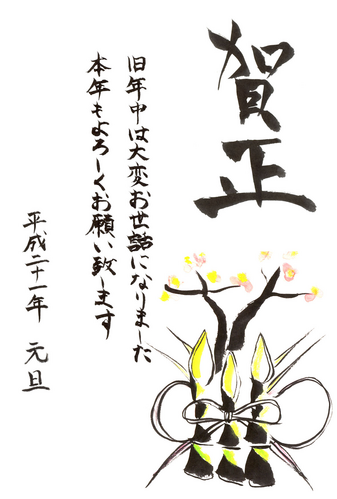 賀正
旧年中は大変お世話になりました
本年もよろしくお願い致します
平成二十一年 元旦